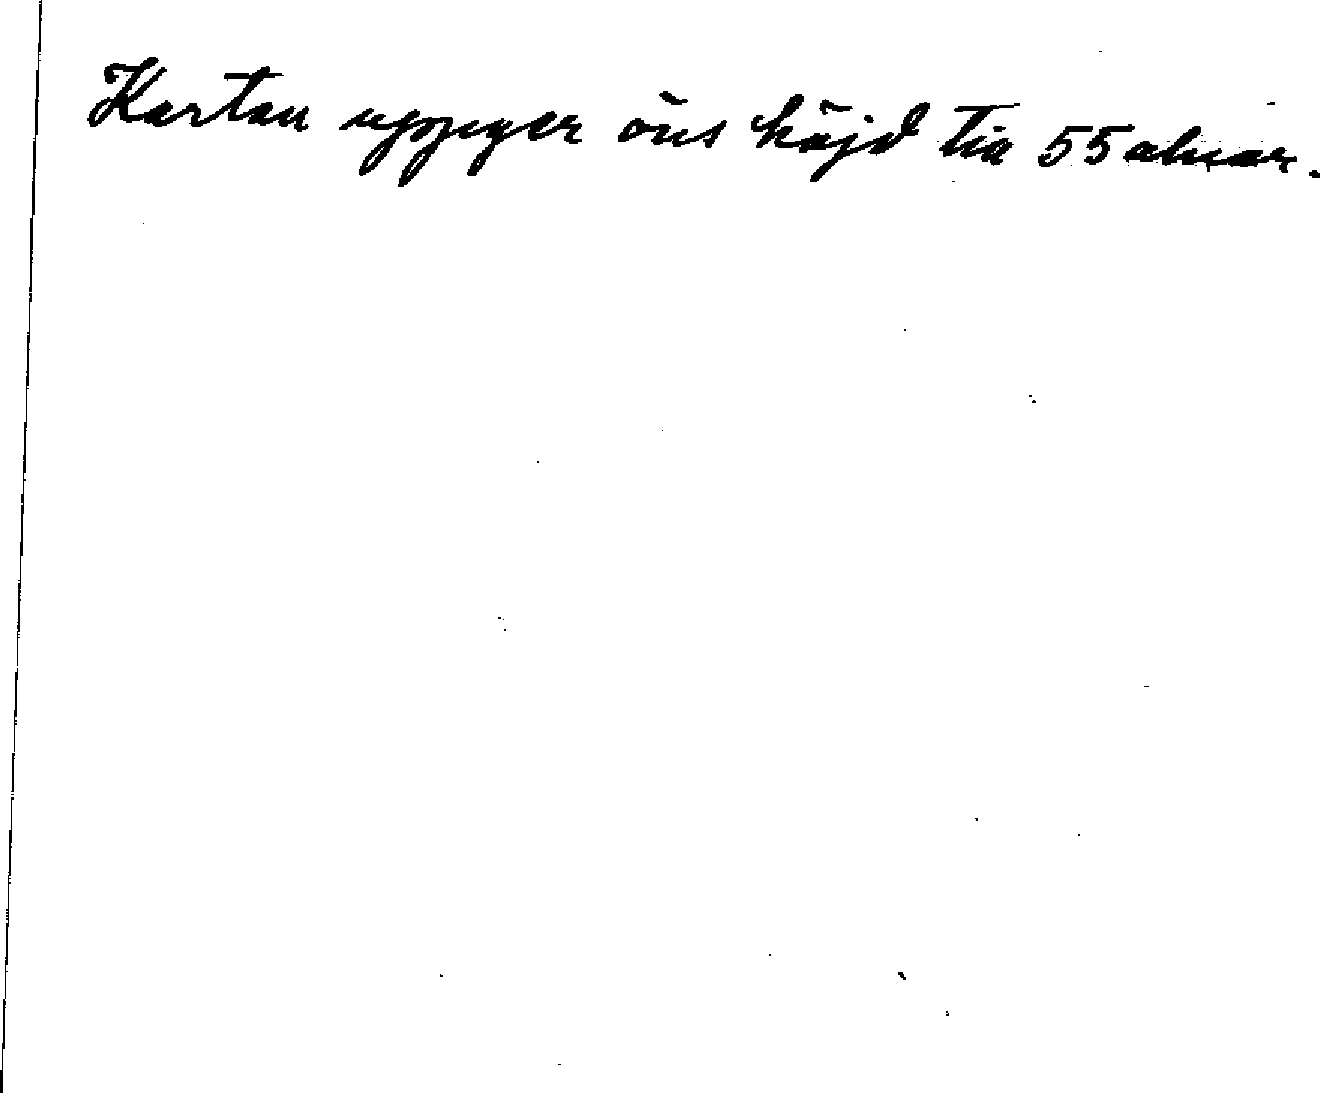 Kartan uppger öns höjd till 55 alnar.